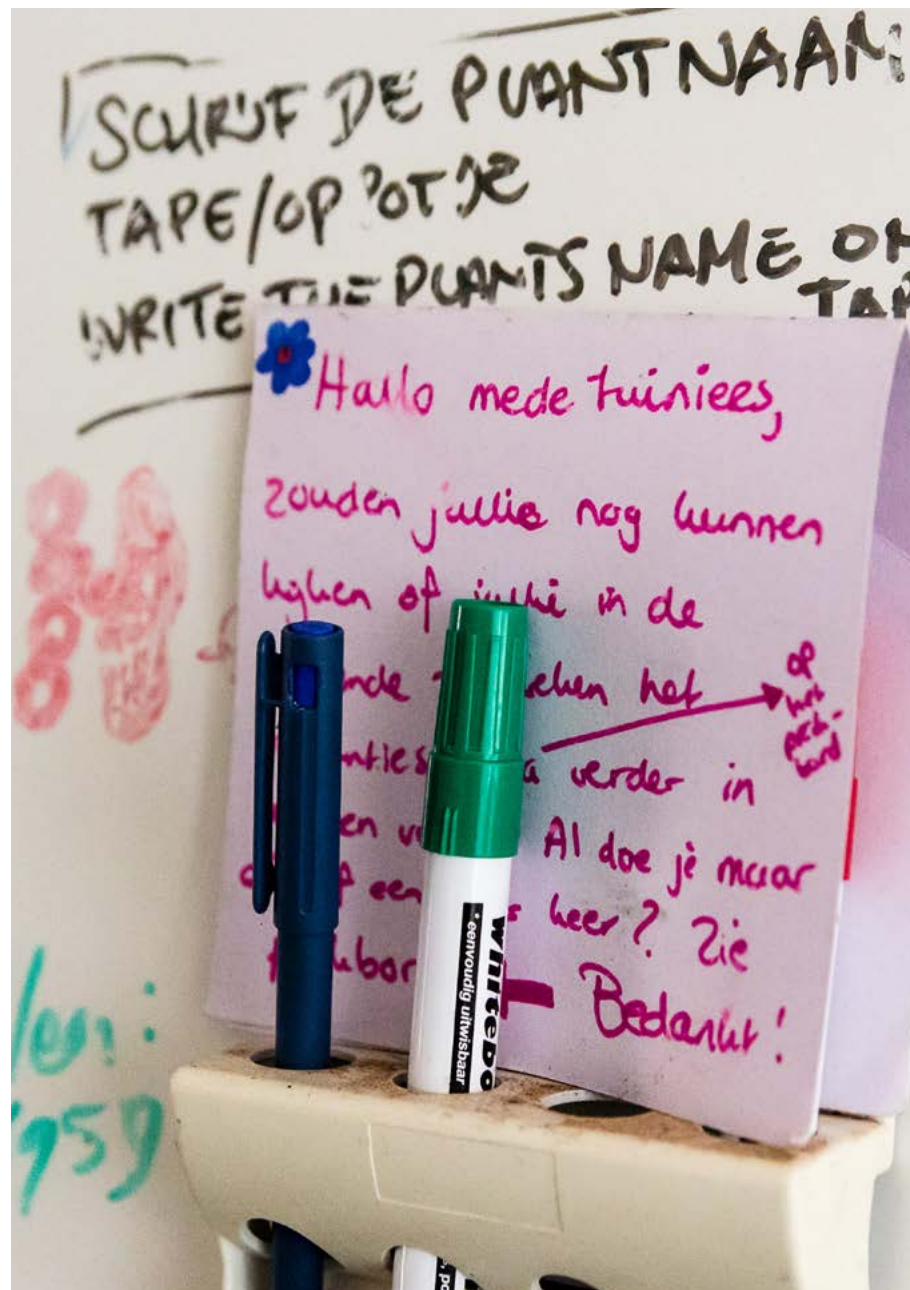 SCHRIJF DE PLANTNAAM
TAPE/OP POTJE
WRITE THE PLANTS NAME ON
TAP
Hallo mede tuiniers,
zouden jullie nog kunnen
kijken of jullie in de
het
op
het
verder in
Al doe je maar
een keer? Zie
Bedankt!
whitebo
• eenvoudig uitwisbaar
959